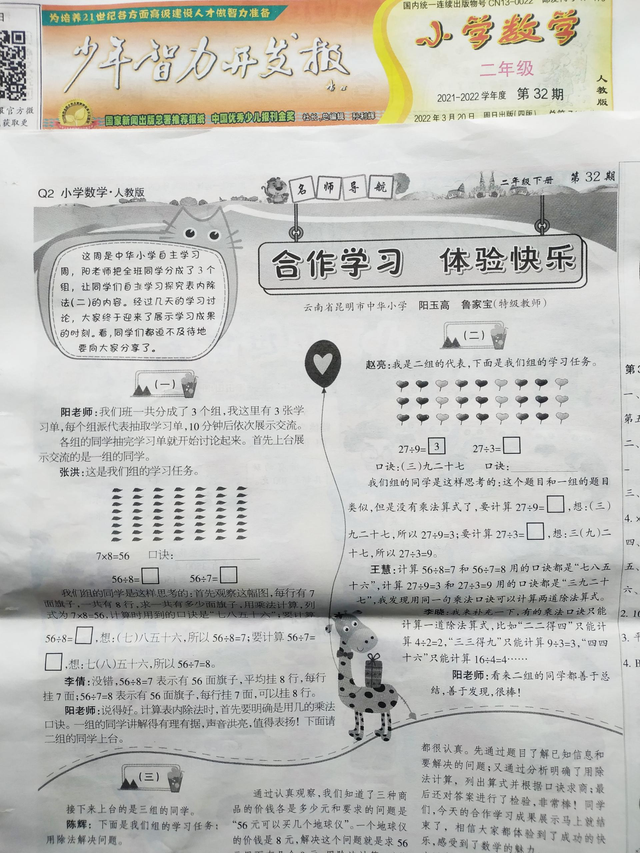 为培养21世纪各方面高级建设人才做智力准备
少年智力开发报
国家新闻出版总署推荐报纸 中国优秀少儿报刊金奖
国内统一连续出版物号 CN13-0022
小学数学
二年级
2021-2022学年度 第32期
2022年3月20日
人教版
Q2 小学数学·人教版
名师导航
二年级下册 第32期
这周是中华小学自主学习
周，阳老师把全班同学分成了3个
组，让同学们自主学习探究表内除
法(二)的内容。经过几天的学习讨
论，大家终于迎来了展示学习成果
的时刻。看，同学们都迫不及待地
要向大家分享了。
合作学习 体验快乐
云南省昆明市中华小学 阳玉高 鲁家宝(特级教师)
(一)
阳老师：我们班一共分成了3个组，我这里有3张学
习单，每个组派代表抽取学习单，10分钟后依次展示交流。
各组的同学抽完学习单就开始讨论起来。首先上台展
示交流的是一组的同学。
张洪：这是我们组的学习任务。
7×8=56 口诀：
56÷8=□ 56÷7=□
我们组的同学是这样思考的：首先观察这幅图，每行有7
面旗子，一共有8行，求一共有多少面旗子，用乘法计算，列
式为7×8=56，计算时用到的口诀是“七八五十六”；要计算
56÷8=□，想：(七)八五十六，所以56÷8=7；要计算56÷7=
□，想：七(八)五十六，所以56÷7=8。
李倩：没错，56÷8=7表示有56面旗子，平均挂8行，每行
挂7面；56÷7=8表示有56面旗子，每行挂7面，可以挂8行。
阳老师：说得好。计算表内除法时，首先要明确是用几的乘法
口诀。一组的同学讲解得有理有据，声音洪亮，值得表扬！下面请
二组的同学上台。
(二)
赵亮：我是二组的代表，下面是我们组的学习任务。
27÷9=3 27÷3=□
口诀：(三)九二十七 口诀：
我们组的同学是这样思考的：这个题目和一组的题目
类似，但是没有乘法算式了，要计算27÷9=□，想：(三)
九二十七，所以27÷9=3；要计算27÷3=□，想：三(九)二
十七，所以27÷3=9。
王慧：计算56÷8=7和56÷7=8用的口诀都是“七八五
十六”，计算27÷9=3和27÷3=9用的口诀都是“三九二十
七”，我发现用同一句乘法口诀可以计算两道除法算式。
李晓：我来补充一下，有的乘法口诀只能
计算一道除法算式，比如“二二得四”只能计
算4÷2=2，“三三得九”只能计算9÷3=3，“四四
十六”只能计算16÷4=4……
阳老师：看来二组的同学都善于总
结，善于发现，很棒！
(三)
接下来上台的是三组的同学。
陈辉：下面是我们组的学习任务：
用除法解决问题。
通过认真观察，我们知道了三种商
品的价钱各是多少元和要求的问题是
“56元可以买几个地球仪”。一个地球仪
的价钱是8元，解决这个问题就是求56
都很认真。先通过题目了解已知信息和
要解决的问题；又通过分析明确了用除
法计算，列出算式并根据口诀求商；最
后还对答案进行了检验，非常棒！同学
们，今天的合作学习成果展示马上就结
束了，相信大家都体验到了成功的快
乐，感受到了数学的魅力。